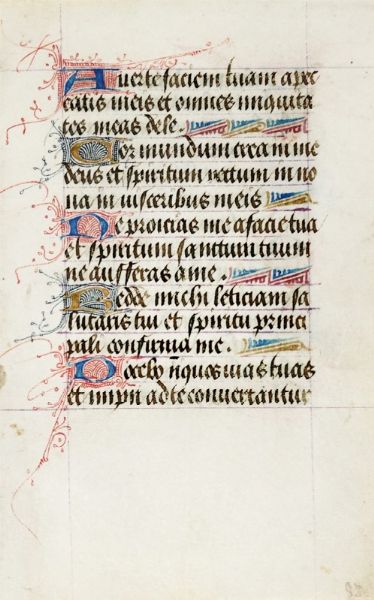 Auerte faciem tuam a pec
catis meis et omnes iniquita
tes meas dele.
Cor mundum crea in me
deus et spiritum rectum in no
ua in uisceribus meis
Ne proicias me a facie tua
et spiritum sanctum tuum
ne aufferas a me.
Redde michi leticiam sa
lutaris tui et spiritu princi
pali confirma me.
Docebo iniquos uias tuas
et impii ad te conuertantur